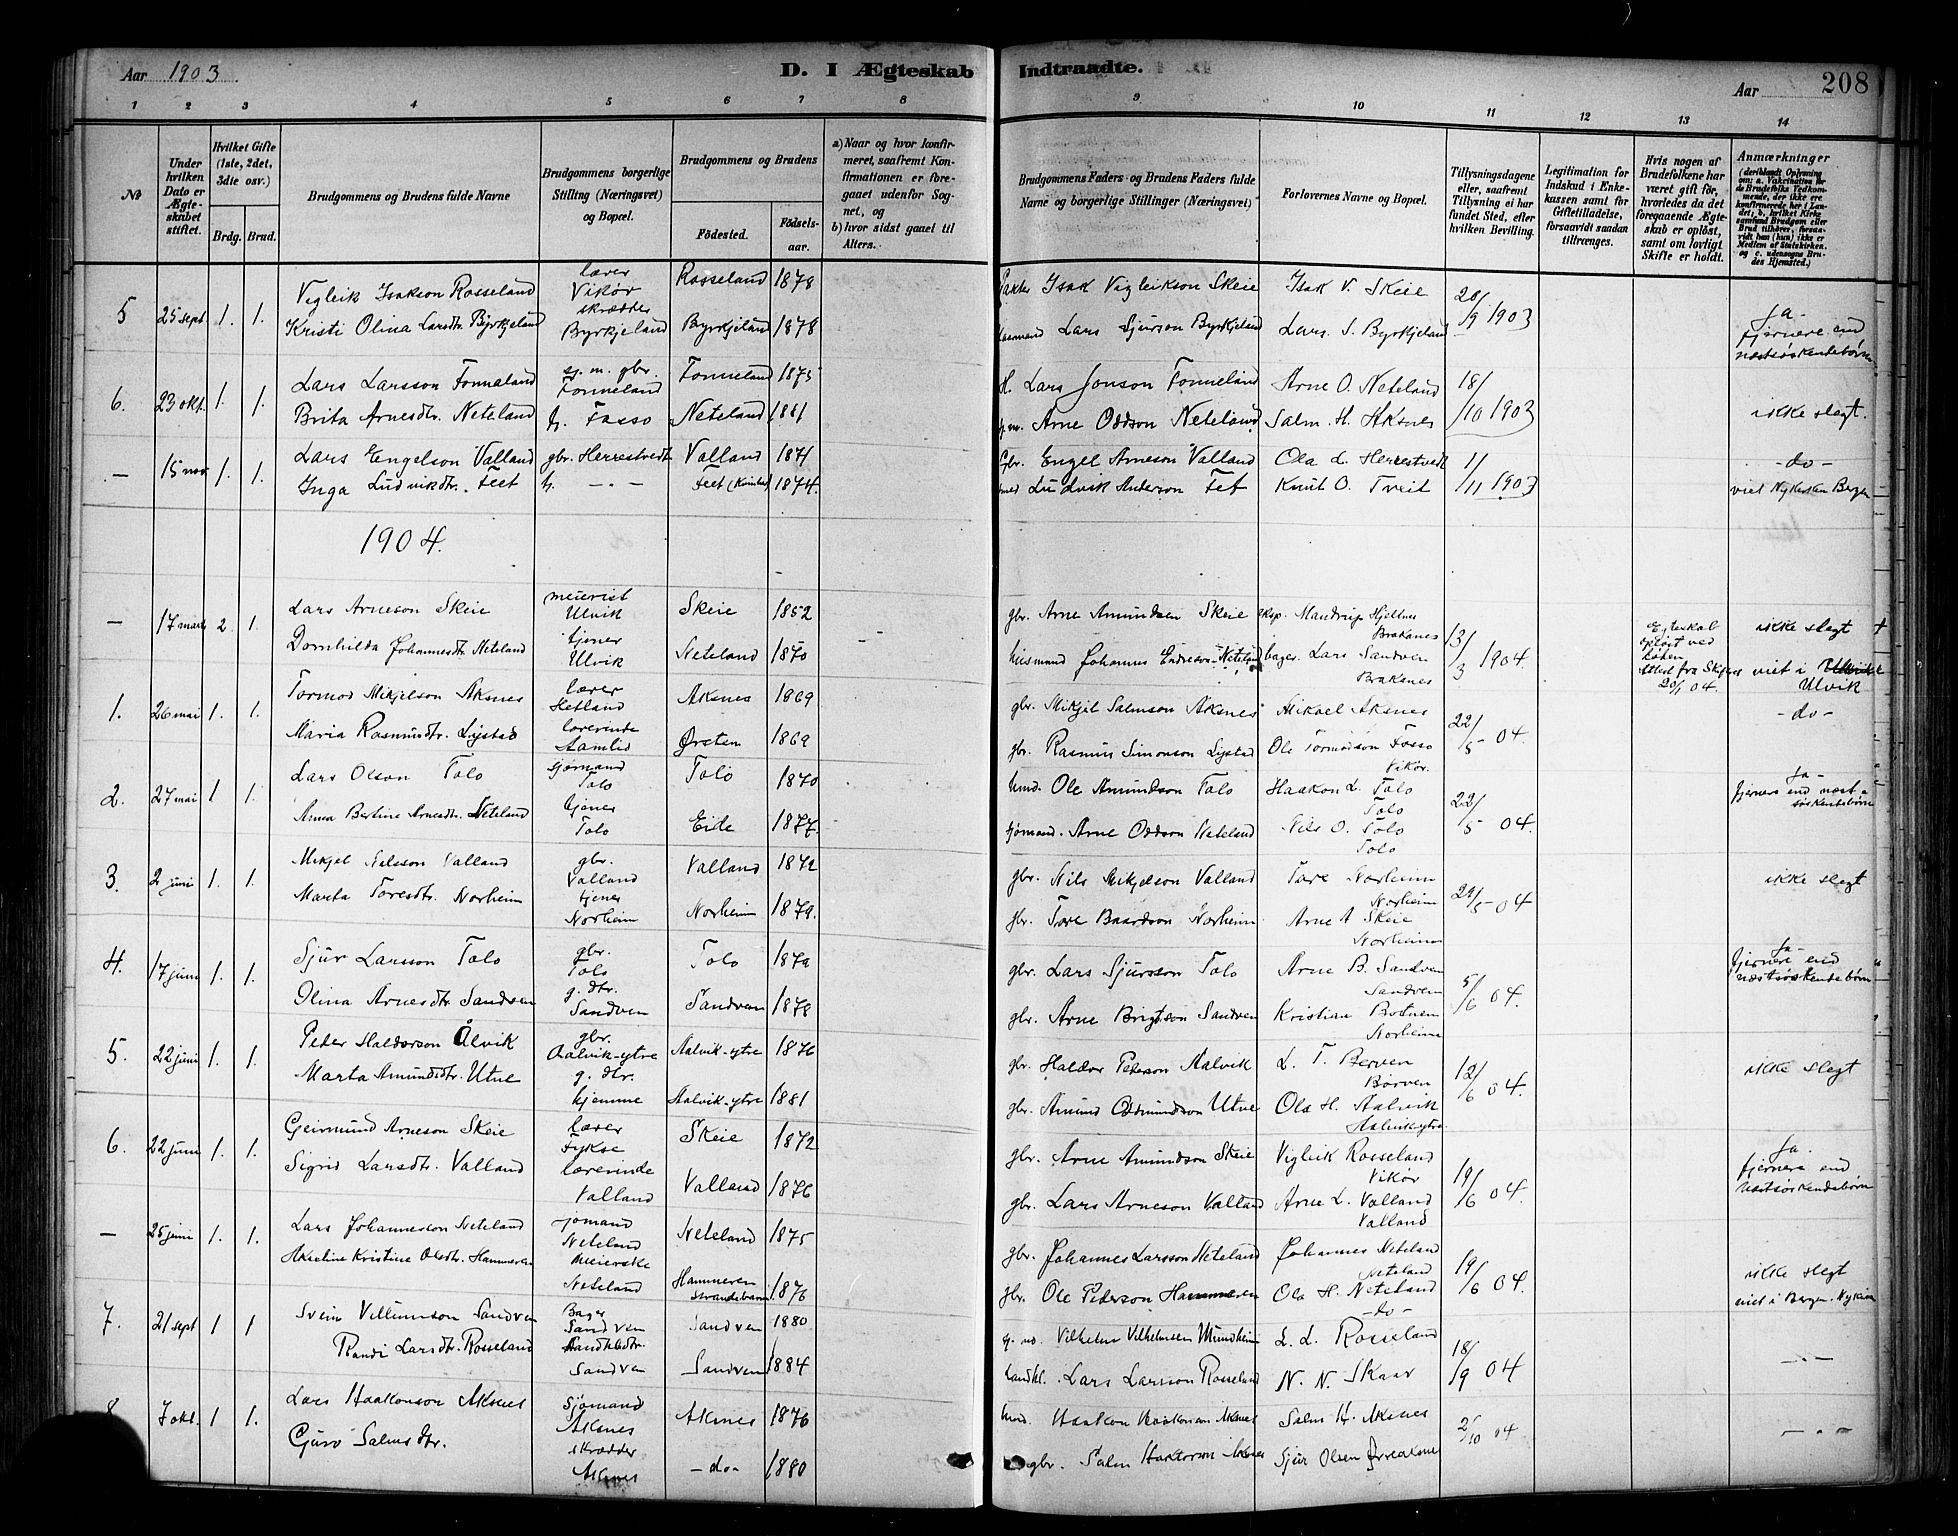 Aar 1903
D. I Ægteskab Indtraadte.
Aar 208
1 2 3 4 5 6 7 8 9 10 11 12 13 14
№
Under hvilken Dato er Ægteskabet stiftet.
Hvilket Gifte (1ste, 2det, 3die osv.)
Brdg. Brud.
Brudgommens og Brudens fulde Navne
Brudgommens borgerlige Stilling (Næringsvei) og Bopæl.
Brudgommens og Brudens
Födested. Födselsaar.
a) Naar og hvor konfirmeret, saafremt Konfirmationen er foregaaet udenfor Sognet, og
b) hvor sidst gaaet til Alters.
Brudgommens Faders- og Brudens Faders fulde Navne og borgerlige Stillinger (Næringsvei)
Forlovernes Navne og Bopæl.
Tillysningsdagene eller, saafremt Tillysning ei har fundet Sted, efter hvilken Bevilling.
Legitimation for Indskud i Enkekassen samt for Giftetilladelse, forsaavidt saadan tiltrænges.
Hvis nogen af Brudefolkene har været gift før, hvorledes da det foregaaende Ægteskab er opløst, samt om lovligt Skifte er holdt.
Anmærkninger
5 25 sept. 1. 1. Vigleik Isakson Rosseland lærer Vikør Rosseland 1878 Isak Vigleikson Skeie Isak V. Skeie 20/9 1903
Kristi Olina Larsdtr. Byrkjeland skrædder Byrkjeland Byrkjeland 1878 Lars Sjurson Byrkjeland Lars S. Byrkjeland Ja - fjernere end næstsøskendebørn
6. 23 okt. 1. 1. Lars Larsson Fonneland sj. m. gbr. Fonneland Fonneland 1875 Lars Jonson Fonneland Arne O. Neteland 18/10 1903
Brita Arnesdtr. Neteland Fosso Neteland 1881 Arne Oddson Neteland Salm. H. Aksnes ikke slegt.
— 15 nov 1. 1. Lars Engelson Valland gbr. Herrestvedt Valland 1871 Gbr. Engel Arneson Valland Ola L. Herrestvedt 1/11 1903 - do -
Inga Ludvikdtr. Feet - - - Feet 1874 Ludvik Anderson Fet Knut O. Tveit viet Nykirken Bergen
1904.
— 17 mars 2. 1. Lars Arneson Skeie meierist Ulvik Skeie 1852 gbr. Arne Amundsen Skeie eksp. Mandrup Hjeltnes Brakanes 13/3 1904. Egteskab opløst ved døden Attest fra Skifter 20/1 04. ikke slegt +
Dornhilda Johannesdtr. Neteland tjener Ulvik Neteland 1870 husmand Johannes Endreson Neteland bager Lars Sandven Brakanes viet i Ulvik
1. 26 mai 1. 1. Tormod Mikjelson Aksnes lærer Hetland Aksnes 1869 gbr. Mikjel Salmson Aksnes Mikael Aksnes 22/5 04. - do -
Maria Rasmusdtr. Lystad lærerinde Ørsten 1869 gbr. Rasmus Simonson Lystad Ole Tormodson Fosso Vikør.
2. 27 mai 1 1. Lars Olson Tolo sjømand Tolo Tolo 1870 Ole Amundson Tolo Haakon L. Tolo Tolo 22/5 04. Ja - fjernere end næstsøskendebørn
Anna Bertine Arnesdtr. Neteland tjener Tolo Eide 1877. sjømand. Arne Oddson Neteland Nils O. Tolo Tolo
3. 2 juni 1. 1. Mikjel Nilsson Valland gbr. Valland Valland 1872 gbr. Nils Mikjelson Valland Tore Norheim Norheim 29/5 04 ikke slegt
Marta Toresdtr. Norheim tjener Norheim Norheim 1879. gbr. Tore Baardson Norheim Arne A Skeie Norheim
4. 17 juni 1. 1. Sjur Larsson Tolo gbr. Tolo Tolo 1879 gbr. Lars Sjursson Tolo Arne B. Sandven Sandven 5/6 04. Ja - fjernere end næstsøskendebørn
Olina Arnesdtr. Sandven g. dtr. Sandven Sandven 1878 gbr. Arne Brigtson Sandven Kristian Botnem Norheim
5. 22 juni 1. 1. Peder Haldorson Ålvik gbr. Aalvik-ytre Aalvik-ytre 1876 gbr. Haldor Peterson Aalvik L. T. Berven Børven 12/6 04. ikke slegt
Marta Amundsdtr. Utne g. dtr. hjemme Aalvik-ytre 1881 gbr. Amund Osmundson Utne Ola H. Aalvik Aalvik-ytre
6. 22 juni 1. 1. Geirmund Arneson Skeie lærer Fykse Skeie 1872 gbr. Arne Amundson Skeie Vigleik Rosseland Vikør 19/6 04. Ja. fjernere end næstsøskendebørn
Sigrid Larsdtr. Valland lærerinde Valland Valland 1876 gbr. Lars Arneson Valland Arne L. Valland Valland
— 25 juni 1. 1. Lars Johanneson Neteland sjømand Neteland Neteland 1875 gbr. Johannes Larsson Neteland Johannes Neteland Neteland 19/6 04. ikke slegt
Kristine Olsdtr. Hammeren meierske Neteland Hammeren Strandebarm 1876 gbr. Ole Pederson Hammeren Ola H. Neteland - do - viet i Bergen. Nykirken
7. 21 sept 1 1 Svein Villumson Sandven Bager Sandven Sandven 1880 Vilhelm Vilhelmsen Mundheim L. L. Rosseland 18/9 04 - - -
Randi Larsdtr. Rosseland Handlsdtr. Sandven Sandven 1884 handl. Lars Larsson Rosseland N. N. Skaar
8 7 okt. 1 1. Lars Haakonson Aksnes Sjømand Aksnes Aksnes 1876 Haakon Haakonson Aksnes Salm H. Aksnes 2/10 04 - - -
Guro Salmsdtr. skrædder Aksnes - do - 1880 gbr. Salm Haakonson Aksnes Sjur Olsen